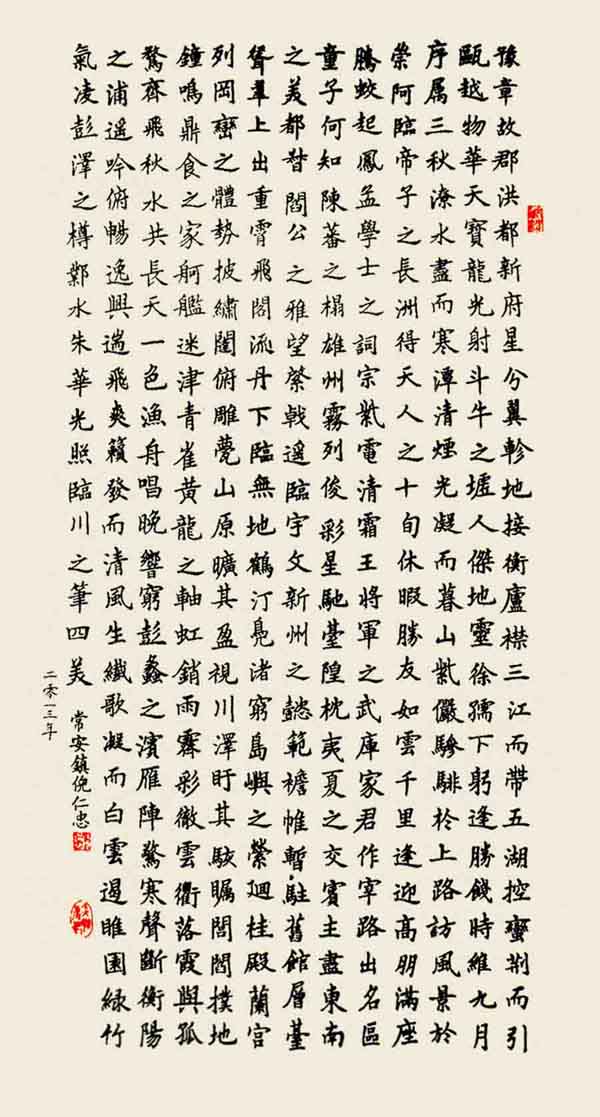 豫章故郡洪都新府星分翼軫地接衡廬襟三江而帶五湖控蠻荊而引
甌越物華天寶龍光射斗牛之墟人傑地靈徐孺下躬逢勝餞時維九月
序属三秋潦水盡而寒潭清煙光凝而暮山紫儼驂騑於上路訪風景於
崇阿臨帝子之長洲得天人之十旬休暇勝友如雲千里逢迎高朋滿座
騰蛟起鳳孟學士之詞宗紫電清霜王將軍之武庫家君作宰路出名區
童子何知陳蕃之榻雄州霧列俊彩星馳臺隍枕夷夏之交賓主盡東南
之美都督閻公之雅望棨戟遙臨宇文新州之懿範襜帷暫駐舊館層臺
聳翠上出重霄飛閣流丹下臨無地鶴汀鳧渚窮島嶼之縈迴桂殿蘭宮
列岡巒之體勢披繡闥俯雕甍山原曠其盈視川澤盱其駭矚閭閻撲地
鐘鳴鼎食之家舸艦迷津青雀黃龍之軸虹銷雨霽彩徹雲衢落霞與孤
鶩齊飛秋水共長天一色漁舟唱晚響窮彭蠡之濱雁陣驚寒聲斷衡陽
之浦遙吟俯暢逸興遄飛爽籟發而清風生纖歌凝而白雲遏睢園綠竹
氣凌彭澤之樽鄴水朱華光照臨川之筆四美
常安鎮倪仁忠
二零一三年